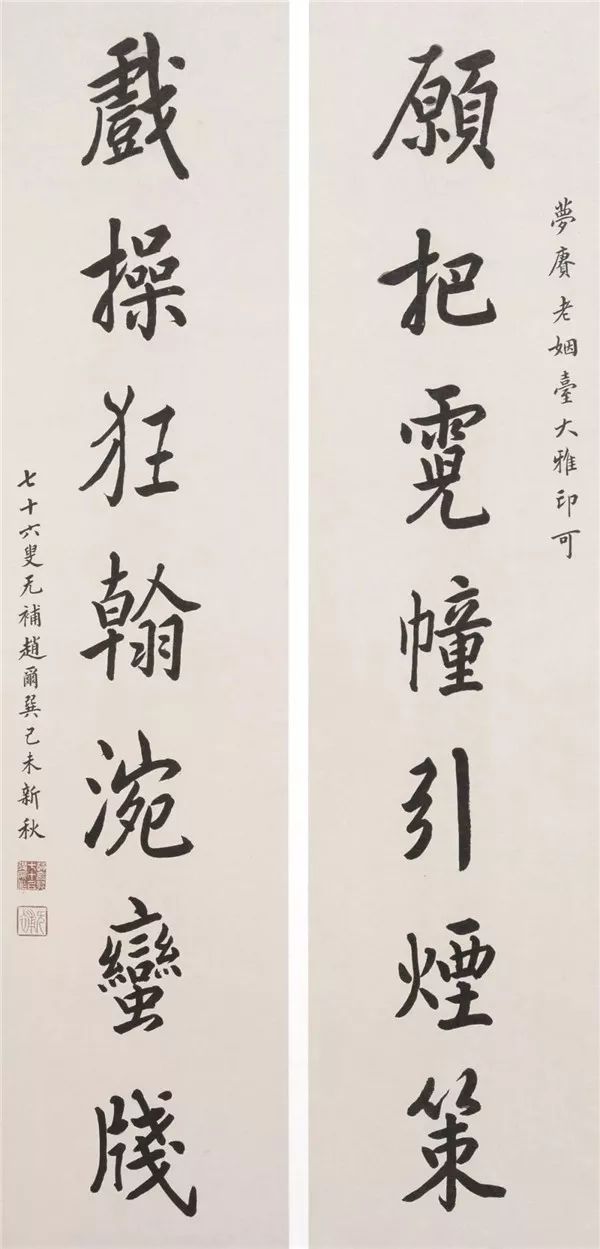 願把霓幢引煙策
夢賡老姻臺大雅印可
戲操狂翰涴蠻牋
七十六叟无補趙爾巽己未新秋